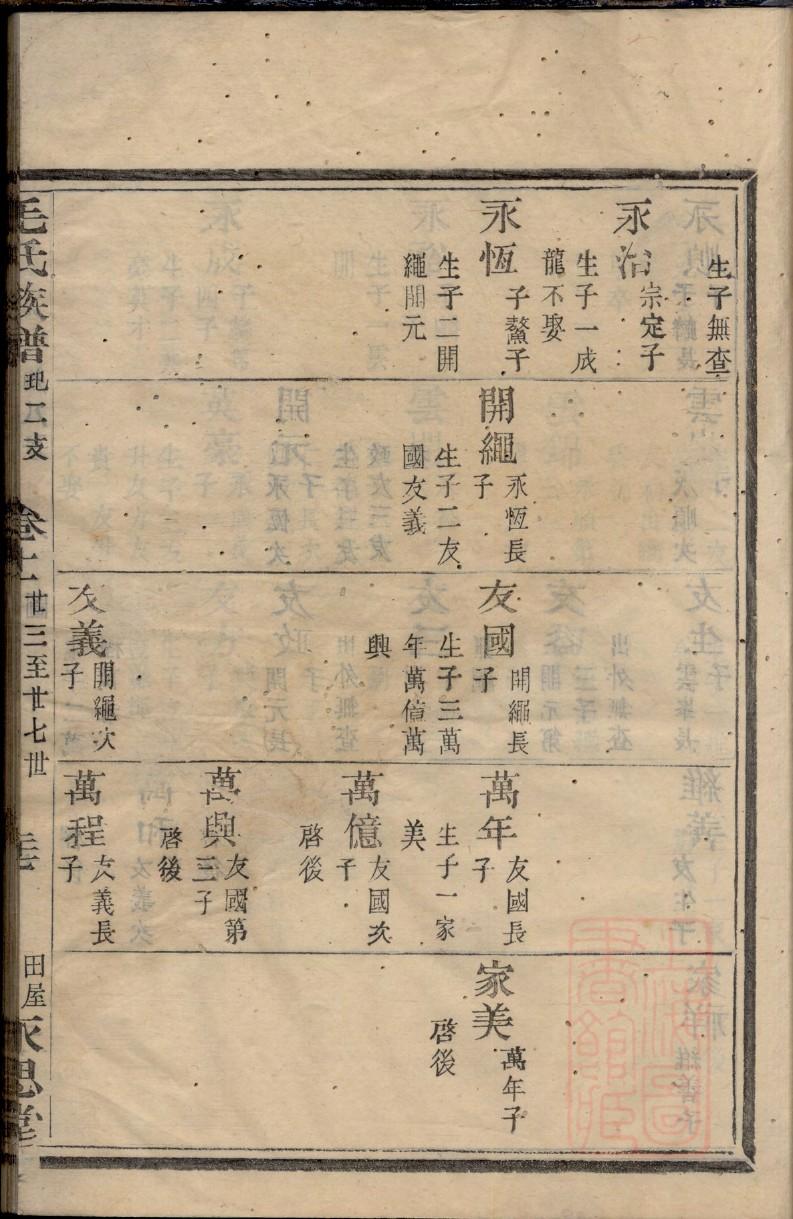 生子無查
永治
宗定子
生子一成
龍不娶
永恆
子鰲子
生子二開
繩開元
開繩
永恆長
子
生子二友
國友義
友國
開繩長
子
生子三萬
年萬億萬
興
友義
開繩次
子
萬年
友國長
子
生子一家
美
萬億
友國次
子
啓後
萬興
友國第
三子
啓後
萬程
友義長
子
家美
萬年子
啓後
毛氏族譜
二支
卷十
廿三至廿七世
田屋
永思堂